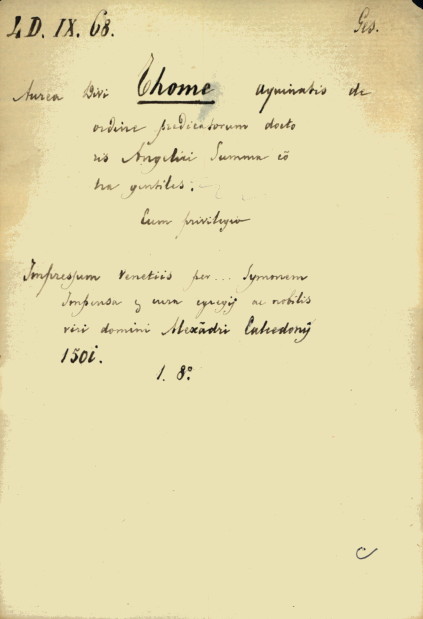 LD. IX. 68. Ges.
Aurea Divi Thome Aquinatis de
ordine predicatorum docto
ris Angelici Summa cō
tra gentiles:
Cum privilegio
Impressum Venetiis per... Symonem
Impensa & cura egregij ac nobilis
viri domini Alexādri Calcedonij
1501.
1. 8º